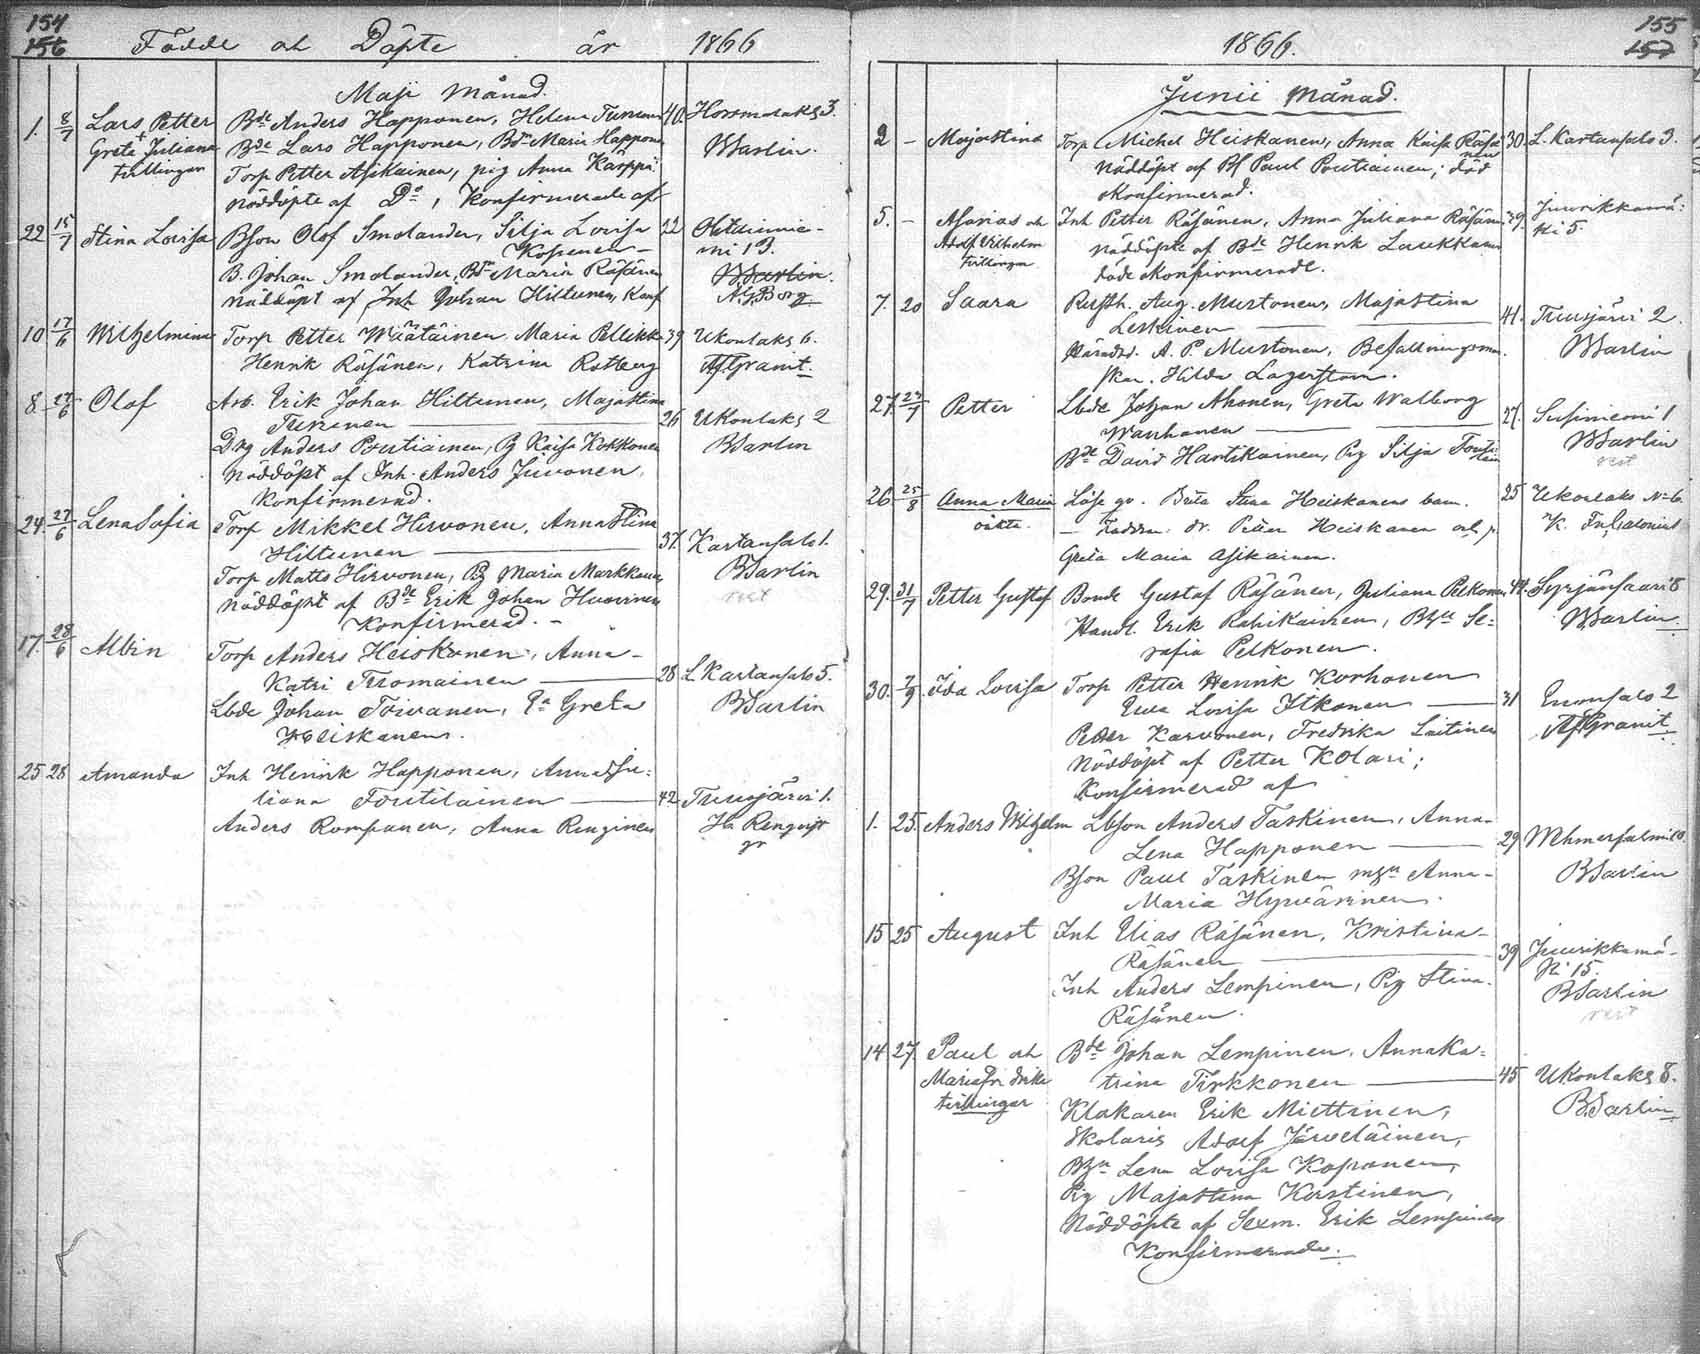 154
156
Födde och Döpte år 1866
Maji Månad.
1. 8/7 Lars Petter Bde Anders Happonen, Helena Turunen 40. Horsmalaks 3
Greta Juliana Bde Lars Happonen, Bdr Maria Happonen B Sarlin.
tvillingar Torp Petter Asikainen, pig Anna Karppi.
Nöddöpte af Do, Konfirmerade af
22 15/7 Stina Lovisa Bson Olof Smolander, Silja Lovisa 22
Koponen
B. Johan Smolander, Bdr Maria Räsänen B Sarlin.
Nöddöpt af Inh Johan Hiltunen, Konf A.G. Borg
10 17/6 Wilhelmina Torp Petter Wäätäinen, Maria Pellikka 39 Ukonlaks 6.
Henrik Räsänen, Katrina Rotberg Af Granit.
8 27/6 Olof Arb. Erik Johan Hiltunen, Maja Stina
Turunen 26 Ukonlaks 2
Drg Anders Poutiainen, Pg Kaisa Kokkonen B Sarlin
Nöddöpt af Inh. Anders Juvonen,
Konfirmerad.
24. 27/6 Lena Sofia Torp Mikkel Hirvonen, Anna Stina
Hiltunen 37. Kartansalo 1.
Torp Matts Hirvonen, Pig Maria Markkanen B Sarlin
Nöddöpt af Bde Erik Johan Huovinen
Konfirmerad.
17. 28/6 Albin Torp Anders Heiskanen, Anna-
Katri Tuomainen 28 L. Kartansalo 5.
Lbde Johan Toivanen, Greta B Sarlin
Heiskanen.
25 28 Amanda Inh Henrik Happonen, Anna Ju:
liana Toutilainen 42 Tuusjärvi 1.
Anders Romppanen, Anna Renginen H. Renqvist
155
157
1866.
Junii Månad.
2 - Maja Stina Torp Michel Heiskanen, Anna Kaisa Räsä 30. L. Kartansalo 3.
nen
Nöddöpt af Paul Poutiainen; död
okonfirmerad.
5. - Asarias och Inh Petter Räsänen, Anna Juliana Räsänen 39. Juurikkamä:
Adolf Vilhelm Nöddöpte af Bde Henrik Laukkanen ki 5.
tvillingar döde okonfirmerade.
7. 20 Saara Rusth. Aug. Murtonen, Maja Stina
Leskinen 41. Tuusjärvi 2.
Häradsd. A. P. Murtonen, Befallningsman. B Sarlin
skan. Hilda Lagerstam.
27. 23/7 Petter Lbde Johan Ahonen, Greta Walborg
Wanhanen 21. Susiniemi 1
Bde David Hartikainen, Pig Silja Touti- B Sarlin
lain
26 25/8 Anna Maria Lösa qv. Brita Stina Heiskanens barn. 25 Ukonlaks No 6
oäkta. Faddrar: dr. Petter Heiskanen och p.
Greta Maria Asikainen.
29. 31/7 Petter Gustaf Bonde Gustaf Räsänen, Juliana Pelkonen 44. Syrjänsaari 8
Handl. Erik Rahikainen, Bhu Se: B Sarlin.
rafia Pelkonen.
30. 7/9 Ida Lovisa Torp Petter Henrik Korhonen
Eva Lovisa Itkonen 31 Enonsalo 2
Petter Karvonen, Fredrika Laitinen Af Granit.
Nöddöpt af Petter Kolari;
Konfirmerad af
1. 25. Anders Wilhelm Lbson Anders Taskinen, Anna-
Lena Happonen 29 Wehmersalmi 10.
Bson Paul Taskinen mhu Anna- B Sarlin
Maria Hyvärinen.
15 25 August Inh Elias Räsänen, Kristina-
Räsänen 39 Juurikkamä-
Inh Anders Lempinen, Pig Stina- ki 15.
Räsänen. B Sarlin
14 27 Paul och Bde Johan Lempinen, Anna Ka=
Maria Fredrika trina Tirkkonen 45 Ukonlaks 8.
tvillingar Klokaren Erik Miettinen, B Sarlin
Skolaris Adolf Järveläinen,
Bhu Lena Lovisa Koponen,
Pig Maja Stina Kastinen,
Nöddöpte af Sexm. Erik Lempinen
Konfirmerade.